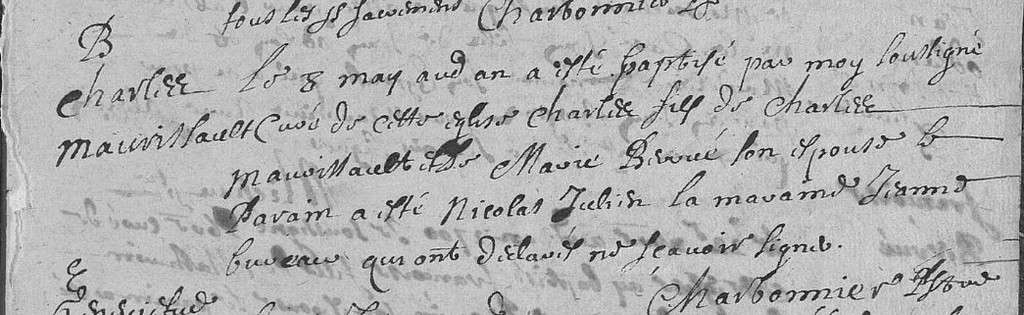 tous les sts sacrements Charbonnier
B
Charles Le 8 may aud an a esté baptisé par moy soussigné
Maurissault Curé de cette eglise Charles fils de Charles
Maurissault et de Marie Berrué son espouse le
Parain a esté Nicolas Julien la maraine Jeanne
bureau qui ont declarés ne scavoir signer.
Charbonnier Pbre